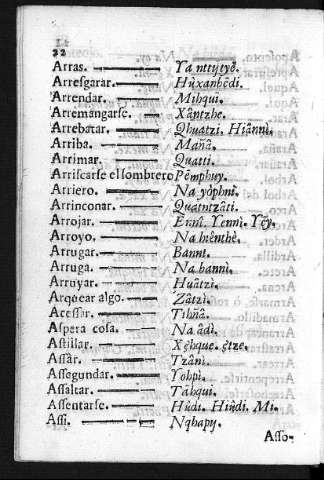 22
Arras. Ya nttytyê.
Arresgarar. Hùxanhêdi.
Arrendar. Mihqui.
Arremangarse. Xântzhe.
Arrebatar. Qhuatzi. Hiânni.
Arriba. Mañâ.
Arrimar. Quatti.
Arriscarse el sombrero Pêmphuy.
Arriero. Na yôphni.
Arrinconar. Quatntzâti.
Arrojar. Yenni.
Arroyo. Na hiênthê.
Arrugar. Banni.
Arruga. Na banni.
Arruyar. Huâtzi.
Arquear algo. Zâtzi.
Acessar. Tihñâ.
Aspera cosa. Na âdi.
Astillar. 
Assar. Tzâni.
Assegundar. Yohpi.
Assaltar. Tahqui.
Assentarse. Hûdi. Hiûdi. Mi.
Assi. Nqhapy.
Asso-